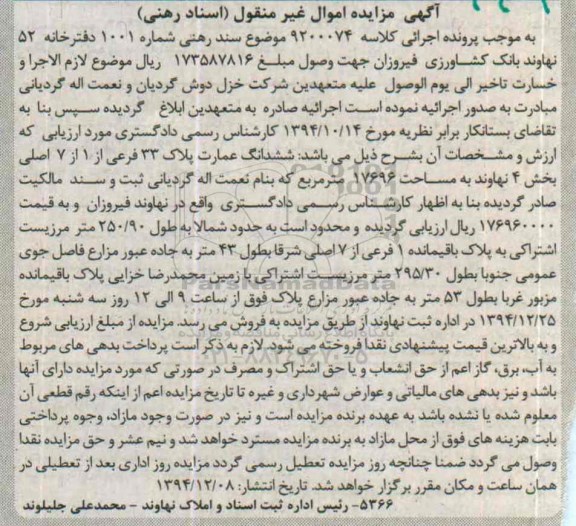 آگهی مزایده اموال غیر منقول (اسناد رهنی)
به موجب پرونده اجرائی کلاسه ۹۲۰۰۰۷۴ موضوع سند رهنی شماره ۱۰۰۱ دفترخانه ۵۲
نهاوند بانک کشاورزی فیروزان جهت وصول مبلغ ۱۷۳۵۸۷۸۱۶ ریال موضوع لازم الاجرا و
خسارت تاخیر الی یوم الوصول علیه متعهدین شرکت خزل دوش گردیان و نعمت اله گردیانی
مبادرت به صدور اجرائیه نموده است اجرائیه صادره به متعهدین ابلاغ گردیده سپس بنا به
تقاضای بستانکار برابر نظریه مورخ ۱۳۹۴/۱۰/۱۴ کارشناس رسمی دادگستری مورد ارزیابی که
ارزش و مشخصات آن بشرح ذیل می باشد: ششدانگ عمارت پلاک ۳۳ فرعی از ۱ از ۷ اصلی
بخش ۴ نهاوند به مساحت ۱۷۶۹۶ مترمربع که بنام نعمت اله گردیانی ثبت و سند مالکیت
صادر گردیده بنا به اظهار کارشناس رسمی دادگستری واقع در نهاوند فیروزان و به قیمت
۱۷۶۹۶۰۰۰۰ ریال ارزیابی گردیده و محدود است به حدود شمالا به طول ۲۵۰/۹۰ متر مرزیست
اشتراکی به پلاک باقیمانده ۱ فرعی از ۷ اصلی شرقا بطول ۴۳ متر به جاده عبور مزارع فاصل جوی
عمومی جنوبا بطول ۲۹۵/۳۰ متر مرزیست اشتراکی با زمین محمدرضا خزایی پلاک باقیمانده
مزبور غربا بطول ۵۳ متر به جاده عبور مزارع پلاک فوق از ساعت ۹ الی ۱۲ روز سه شنبه مورخ
۱۳۹۴/۱۲/۲۵ در اداره ثبت نهاوند از طریق مزایده به فروش می رسد. مزایده از مبلغ ارزیابی شروع
و به بالاترین قیمت پیشنهادی نقدا فروخته می شود. لازم به ذکر است پرداخت بدهی های مربوط
به آب، برق، گاز اعم از حق انشعاب و یا حق اشتراک و مصرف در صورتی که مورد مزایده دارای آنها
باشد و نیز بدهی های مالیاتی و عوارض شهرداری و غیره تا تاریخ مزایده اعم از اینکه رقم قطعی آن
معلوم شده یا نشده باشد به عهده برنده مزایده است و نیز در صورت وجود مازاد، وجوه پرداختی
بابت هزینه های فوق از محل مازاد به برنده مزایده مسترد خواهد شد و نیم عشر و حق مزایده نقدا
وصول می گردد ضمنا چنانچه روز مزایده تعطیل رسمی گردد مزایده روز اداری بعد از تعطیلی در
همان ساعت و مکان مقرر برگزار خواهد شد. تاریخ انتشار: ۱۳۹۴/۱۲/۰۸
۵۳۶۶- رئیس اداره ثبت اسناد و املاک نهاوند - محمدعلی جلیلوند
ParsNamadData